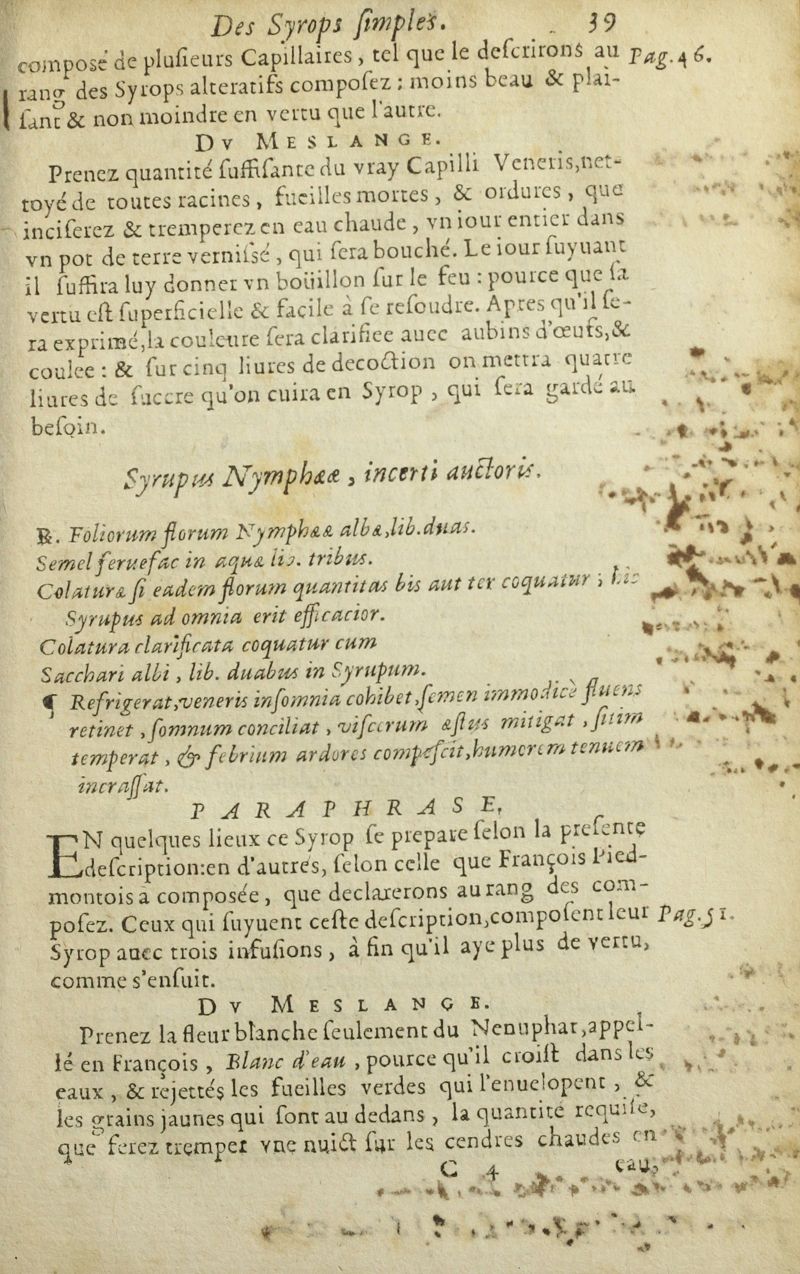 Des Syrops ſimples. 39
composé de pluſieurs Capillaires, tel que le deſcrirons au Pag. 46.
rang des Syrops alteratifs compoſez: moins beau & plai-
ſant & non moindre en vertu que l'autre.
DV MESLANGE.
Prenez quantité ſuffiſante du vray Capilli Veneris, net-
toyé de toutes racines, fueilles mortes, & ordures, que
inciſerez & tremperez en eau chaude, vn iour entier dans
vn pot de terre verniſsé, qui ſera bouché. Le iour ſuyuant
il ſuffira luy donner vn boüillon ſur le feu: pource que ſa
vertu eſt ſuperficielle & facile à ſe reſoudre. Apres qu'il ſe-
ra exprimé, la couleure ſera clarifiee auec aubins d'œufs, &
coulee: & ſur cinq liures de decoction on mettra quatre
liures de ſuccre qu'on cuira en Syrop, qui ſera gardé au
beſoin.
Syrupus Nymphææ, incerti auctoris.
℞. Foliorum florum Nymphææ albæ, lib. duas.
Semel feruefac in aquæ lib. tribus.
Colaturæ ſi eadem florum quantitas bis aut ter coquatur; hic
Syrupus ad omnia erit efficacior.
Colatura clarificata coquatur cum
Sacchari albi, lib. duabus in Syrupum.
¶ Refrigerat, veneris inſomnia cohibet, ſemen immodicè fluens
retinet, ſomnum conciliat, viſcerum æſtus mitigat, ſitim
temperat, & febrium ardores compeſcit, humorem tenuem
incraſſat.
PARAPHRASE.
EN quelques lieux ce Syrop ſe prepare ſelon la preſente
deſcription: en d'autres, ſelon celle que François Pied-
montois a composée, que declarerons au rang des com-
poſez. Ceux qui ſuyuent ceſte deſcription, compoſent leur Pag. 51.
Syrop auec trois infuſions, à fin qu'il aye plus de vertu,
comme s'enſuit.
DV MESLANGE.
Prenez la fleur blanche ſeulement du Nenuphar, appel-
lé en François, Blanc d'eau, pource qu'il croiſt dans les
eaux, & rejettés les fueilles verdes qui l'enuelopent, &
les grains jaunes qui ſont au dedans, la quantité requiſe,
que ferez tremper vne nuict ſur les cendres chaudes en
C 4 eau,